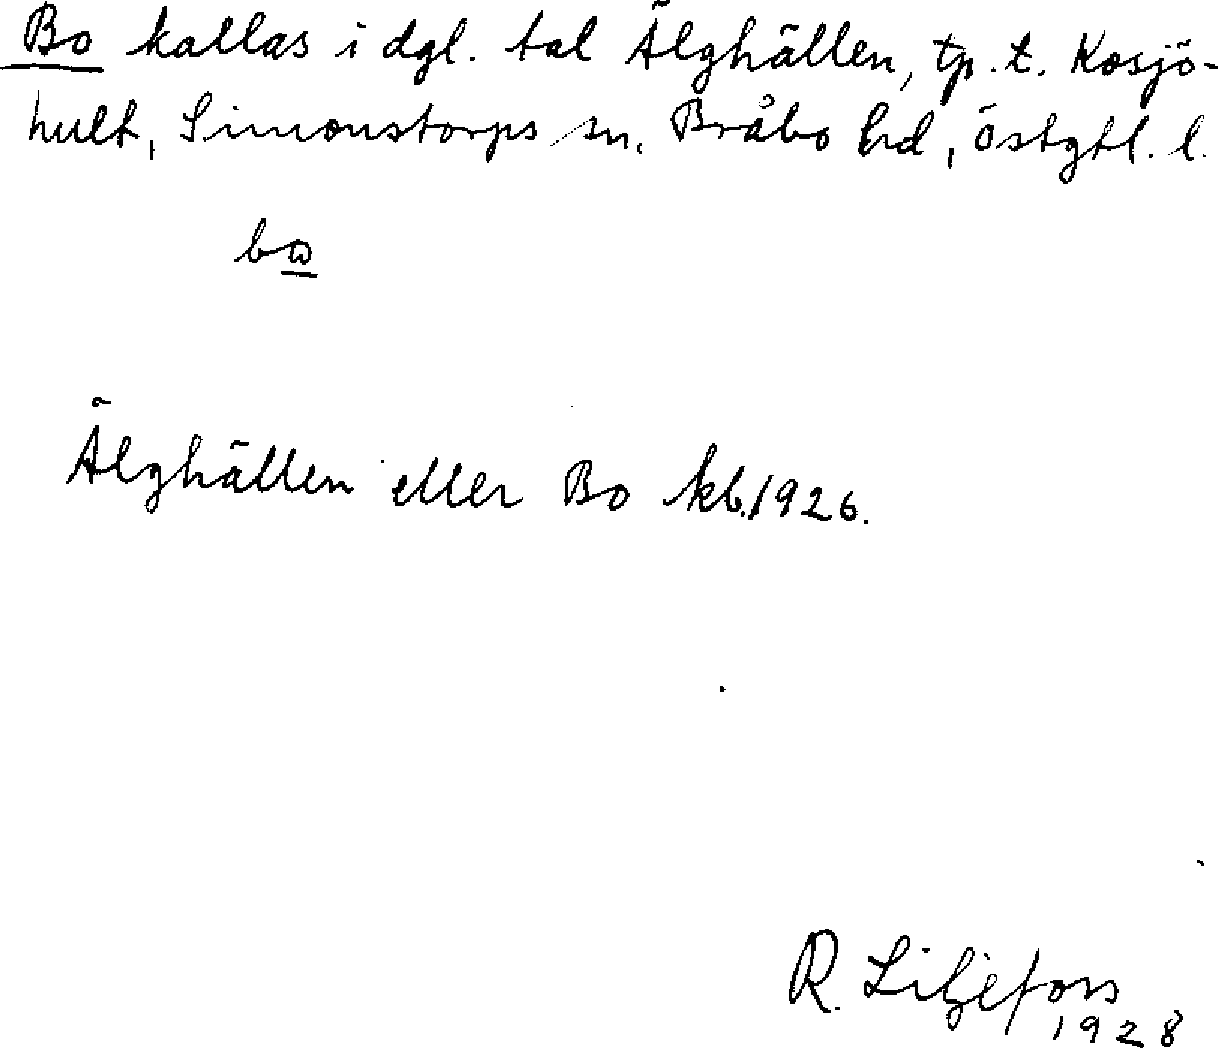 Bo kallas i dgl. tal Älghällen, tp. t. Kosjö-
hult, Simonstorps sn. Bråbo hd, Östgtl. l.
bω
Älghällen eller Bo kb. 1926.
R. Liljefors
1928